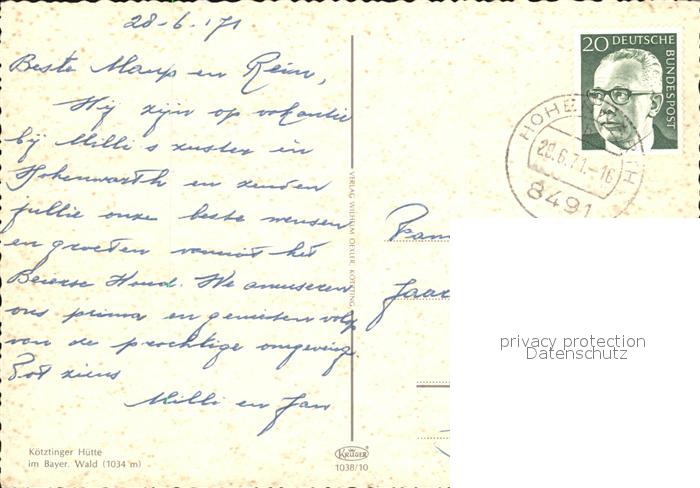 28-6-'71
Beste Maup en Rein,
Wij zijn op vakantie
bij Milli s zuster in
Hohenwarth en zenden
jullie onze beste wensen
en groeten vanuit het
Beierse Woud. We amuseren
ons prima en genieten volop
van de prachtige omgeving.
Tot ziens
Milli en Jan
Kötztinger Hütte
im Bayer. Wald (1034 m)
VERLAG WILHELM OEXLER, KÖTZTING
KRÜGER
1038/10
20 DEUTSCHE
BUNDESPOST
29.6.71.-16
8491
Fam
privacy protection
Datenschutz